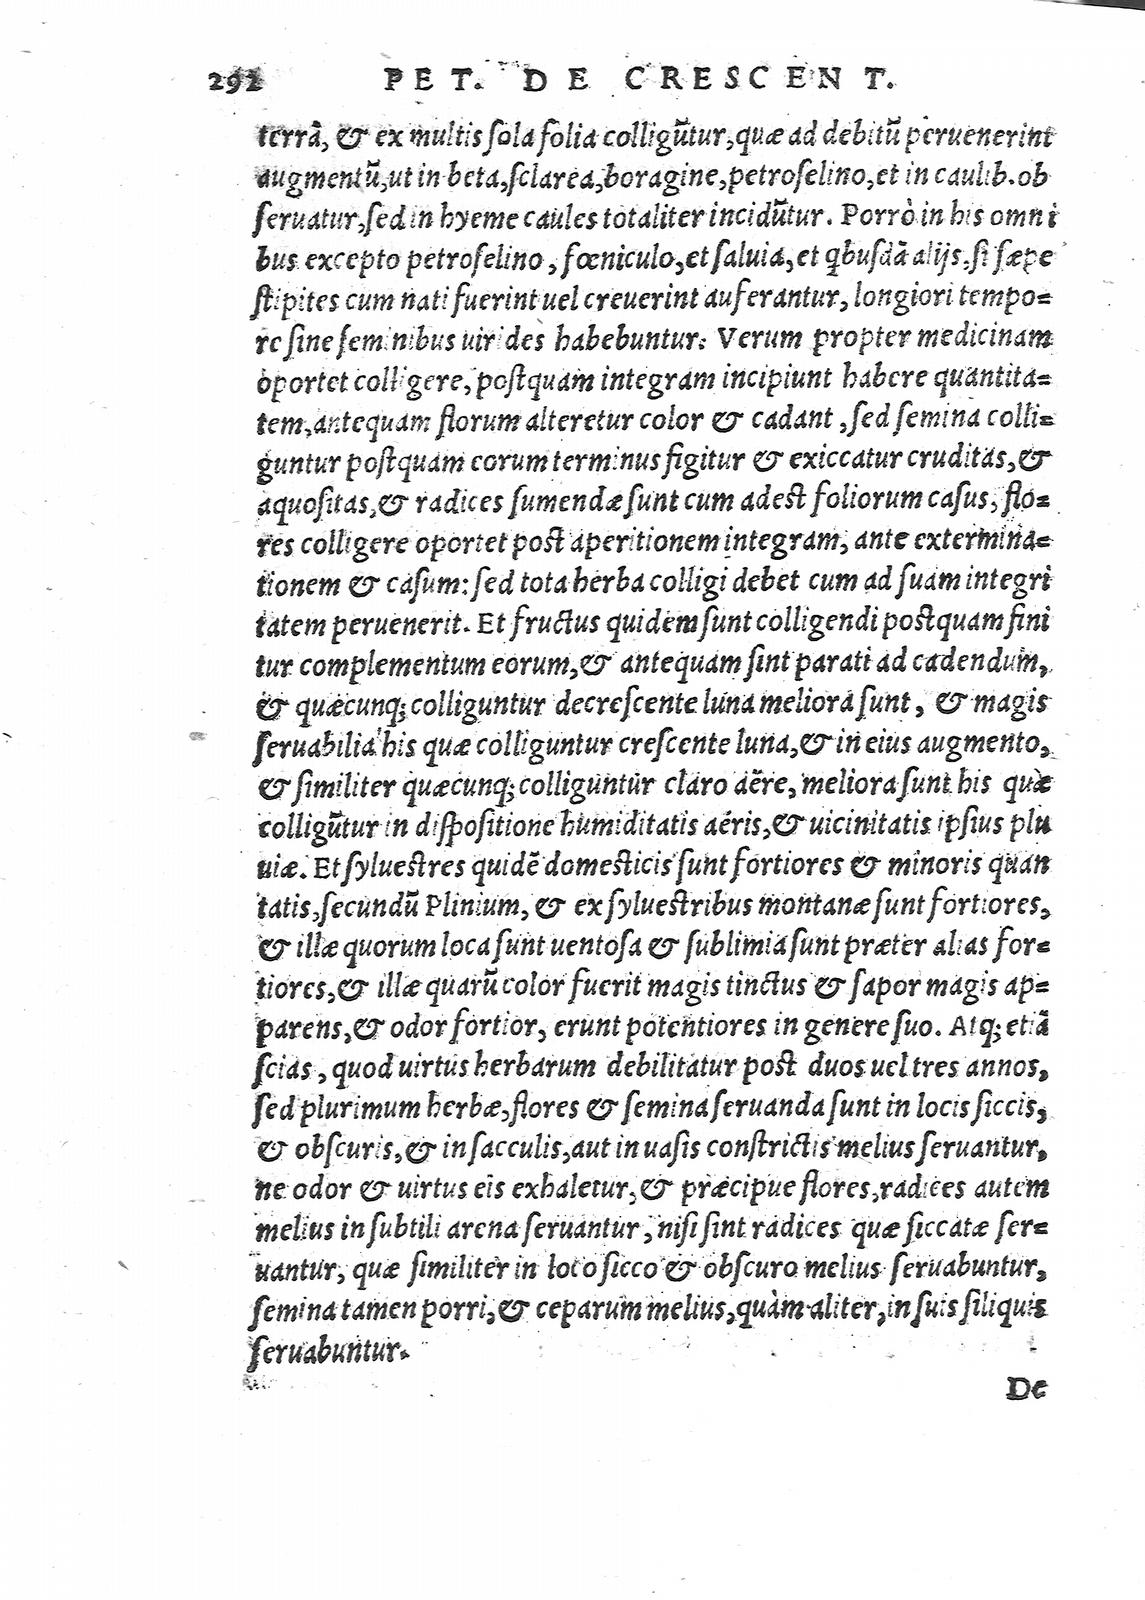 292 PET. DE CRESCENT.
terrã, & ex multis ſola folia colligũtur, quæ ad debitũ peruenerint
augmentũ, ut in beta, ſclarea, boragine, petroſelino, et in caulib. ob
ſeruatur, ſed in hyeme caules totaliter incidũtur. Porrò in his omni
bus excepto petroſelino, fœniculo, et ſaluia, et qbuſdã alijs, ſi ſæpe
ſtipites cum nati fuerint uel creuerint auferantur, longiori tempo=
re ſine ſeminibus uirides habebuntur. Verum propter medicinam
oportet colligere, poſtquam integram incipiunt habere quantita=
tem, antequam florum alteretur color & cadant, ſed ſemina colli=
guntur poſtquam eorum terminus figitur & exiccatur cruditas, &
aquoſitas, & radices ſumendæ ſunt cum adeſt foliorum caſus, flo=
res colligere oportet poſt aperitionem integram, ante extermina=
tionem & caſum: ſed tota herba colligi debet cum ad ſuam integri
tatem peruenerit. Et fructus quidem ſunt colligendi poſtquam fini
tur complementum eorum, & antequam ſint parati ad cadendum,
& quæcunq; colliguntur decreſcente luna meliora ſunt, & magis
ſeruabilia his quæ colliguntur creſcente luna, & in eius augmento,
& ſimiliter quæcunq; colliguntur claro aëre, meliora ſunt his quæ
colligũtur in diſpoſitione humiditatis aëris, & uicinitatis ipſius plu
uiæ. Et ſylueſtres quidẽ domeſticis ſunt fortiores & minoris quan
tatis, ſecundũ Plinium, & ex ſylueſtribus montanæ ſunt fortiores,
& illæ quorum loca ſunt uentoſa & ſublimia ſunt præter alias for=
tiores, & illæ quarũ color fuerit magis tinctus & ſapor magis ap=
parens, & odor fortior, erunt potentiores in genere ſuo. Atq; etiã
ſcias, quod uirtus herbarum debilitatur poſt duos uel tres annos,
ſed plurimum herbæ, flores & ſemina ſeruanda ſunt in locis ſiccis,
& obſcuris, & in ſacculis, aut in uaſis conſtrictis melius ſeruantur,
ne odor & uirtus eis exhaletur, & præcipue flores, radices autem
melius in ſubtili arena ſeruantur, niſi ſint radices quæ ſiccatæ ſer=
uantur, quæ ſimiliter in loco ſicco & obſcuro melius ſeruabuntur,
ſemina tamen porri, & ceparum melius, quàm aliter, in ſuis ſiliquis
ſeruabuntur.
De